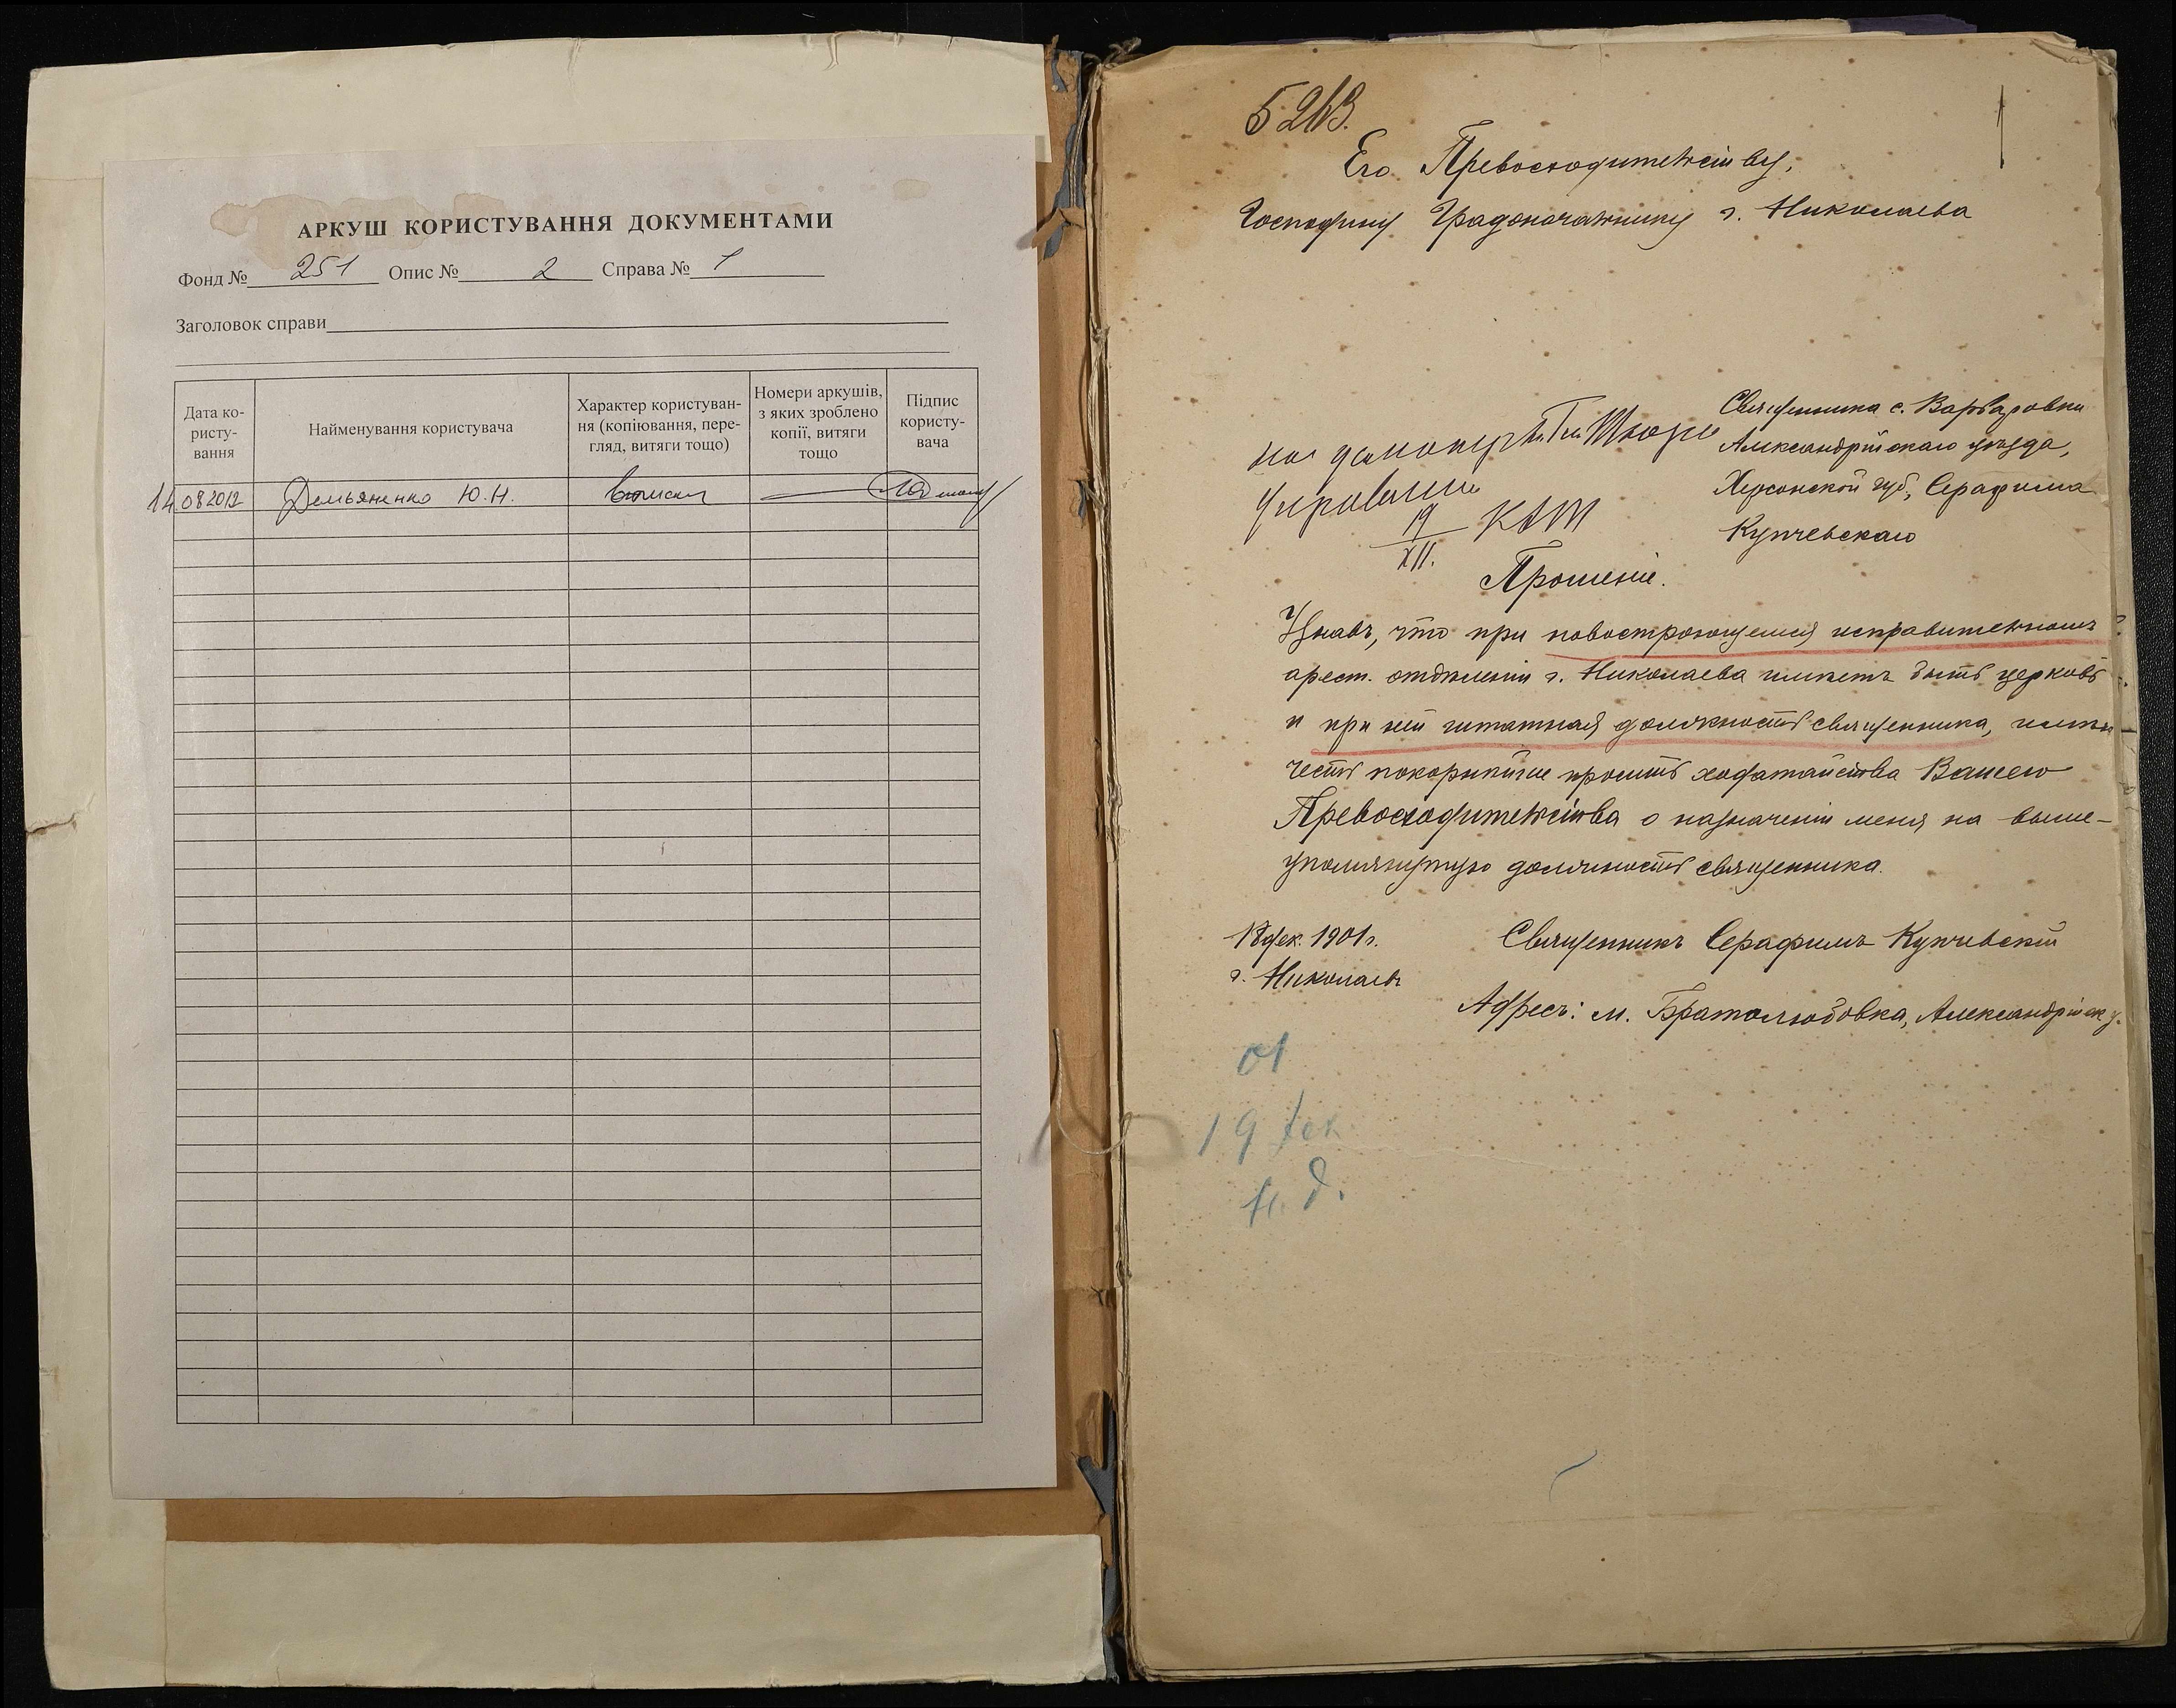 АРКУШ КОРИСТУВАННЯ ДОКУМЕНТАМИ
Фонд № 251 Опис № 2 Справа № 1
Заголовок справи
Дата ко-
ристу-
вання
Найменування користувача
Характер користуван-
ня (копіювання, пере-
гляд, витяги тощо)
Номери аркушів,
з яких зроблено
копії, витяги
тощо
Підпис
користу-
вача
14.08.2012 Демьяненко Ю.Н.
1
Его Превосходительству,
Господину Градоначальнику г. Николаева
Священника с. Варваровки
Александрійскаго уѣзда,
Херсонской губ., Серафима
Купчевскаго
19
XII.
Прошеніе.
Узнавъ, что при новостроющемся исправительномъ
арест. отдѣленіи г. Николаева имѣетъ быть церковь
и при ней штатная должность священника, имѣю
честь покорнѣйше просить ходатайства Вашего
Превосходительства о назначеніи меня на выше-
упомянутую должность священника.
18 дек. 1901 г.
г. Николаевъ
Священникъ Серафимъ Купчевскій
Адресъ: м. Братолюбовка, Александрійск у.
01
19 дек